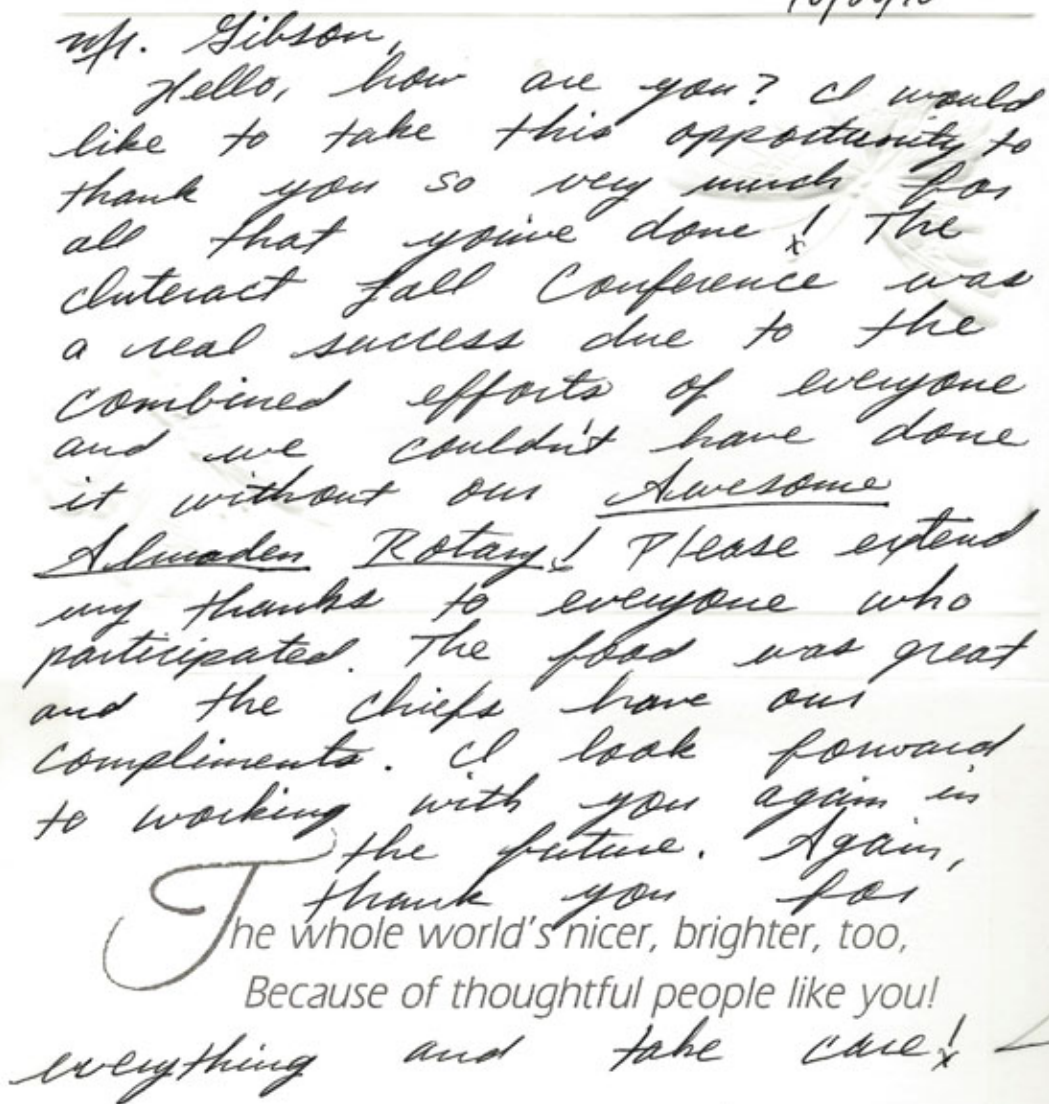 Mr. Gibson,
Hello, how are you? I would
like to take this opportunity to
thank you so very much for
all that you've done! The
Interact Fall Conference was
a real success due to the
combined efforts of everyone
and we couldn't have done
it without our Awesome
Almaden Rotary! Please extend
my thanks to everyone who
participated. The food was great
and the chiefs have our
compliments. I look forward
to working with you again in
the future. Again,
thank you for
The whole world's nicer, brighter, too,
Because of thoughtful people like you!
everything and take care!